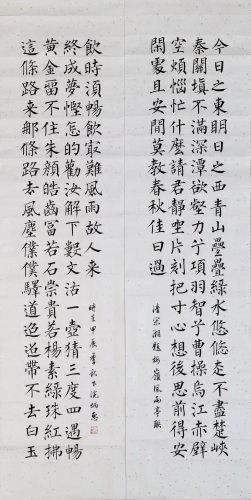 今日之東明日之西青山疊疊綠水悠悠走不盡楚峽
秦關填不滿深潭欲壑力兮項羽智兮曹操烏江赤壁
空煩惱忙什麼請君靜坐片刻把寸心想後思前得安
閑處且安閒莫教春秋佳日過
清宋湘題梅嶺風雨亭聯
這條路来那條路去風塵僕僕驛道迢迢帶不去白玉
黃金留不住朱顔皓齒富若石崇貴若楊素綠珠紅拂
終成夢慳怎的勸汝解下數文沽一壺猜三度四遇暢
飲時須暢飲最難風雨故人来
時在甲辰季秋下浣炳惠